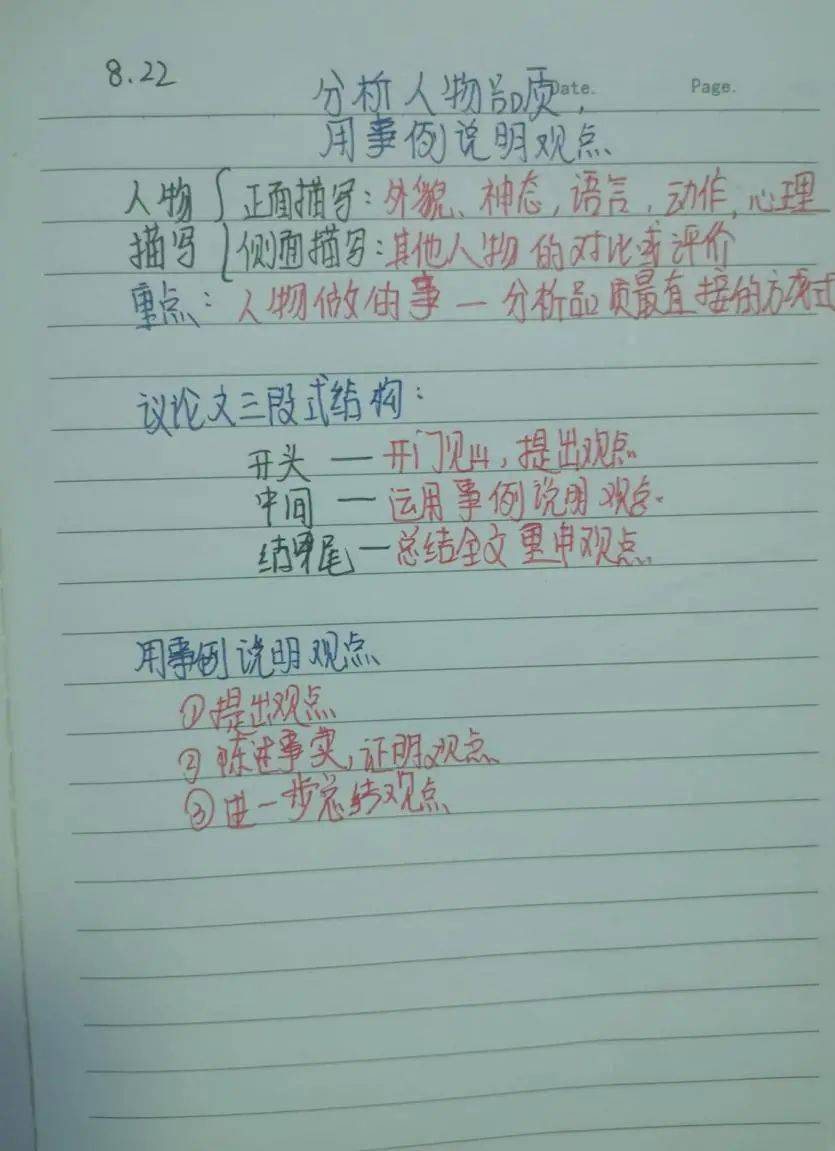 8.22
Date.
Page.
分析人物品质,
用事例说明观点
人物 { 正面描写:外貌、神态,语言,动作,心理
描写 { 侧面描写:其他人物的对比或评价
重点: 人物做的事 — 分析品质最直接的方式
议论文三段式结构:
开头 — 开门见山,提出观点
中间 — 运用事例说明观点.
结尾 — 总结全文重申观点.
用事例说明观点
①提出观点
②陈述事实,证明观点
③进一步总结观点